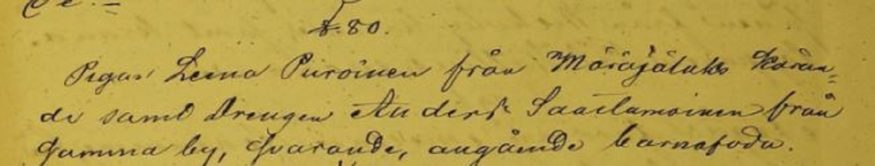 §.80.
Pigan Leena Puroinen från Määräjälaks Käran-
de samt Drengen Anders Saastamoinen från
samma by, svarande, angående barnafoda.